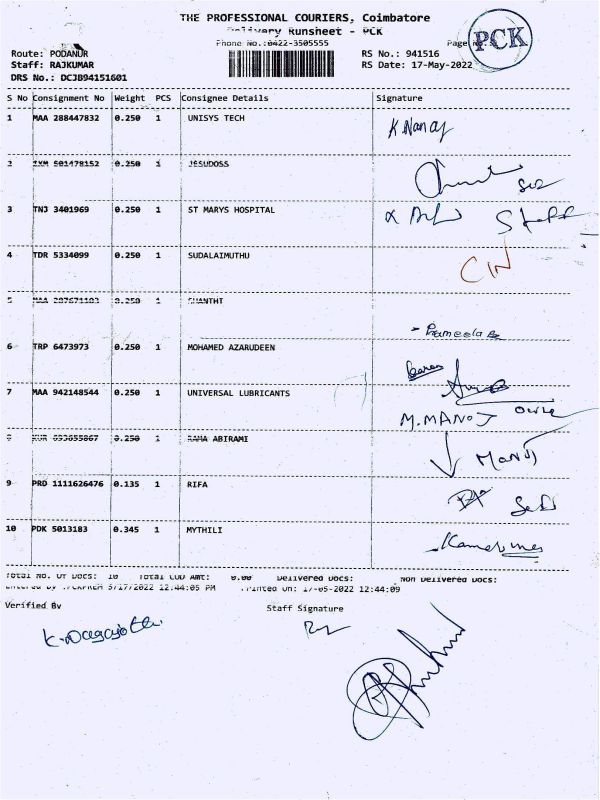 THE PROFESSIONAL COURIERS, Coimbatore
Delivery Runsheet - PCK
Phone No.:0422-3505555
Page No.
PCK
Route: PODANUR
RS No.: 941516
Staff: RAJKUMAR
RS Date: 17-May-2022
DRS No.: DCJB94151601
S No Consignment No Weight PCS Consignee Details Signature
1 MAA 288447832 0.250 1 UNISYS TECH
2 501478152 0.250 1 JESUDOSS
3 TNJ 3401969 0.250 1 ST MARYS HOSPITAL Staff
4 TDR 5334099 0.250 1 SUDALAIMUTHU
5 MAA 0.250 1 SHANTHI Prameela
6 TRP 6473973 0.250 1 MOHAMED AZARUDEEN
7 MAA 942148544 0.250 1 UNIVERSAL LUBRICANTS M.MANOJ
8 0.250 1 RAMA ABIRAMI MANOJ
9 PRD 1111626476 0.135 1 RIFA
10 PDK 5013183 0.345 1 MYTHILI
Total No. Of Docs: 10 Total COD Amt: 0.00 Delivered Docs: Non Delivered Docs:
Entered By 5/17/2022 12:44:05 PM Printed On: 17-05-2022 12:44:09
Verified By
Staff Signature